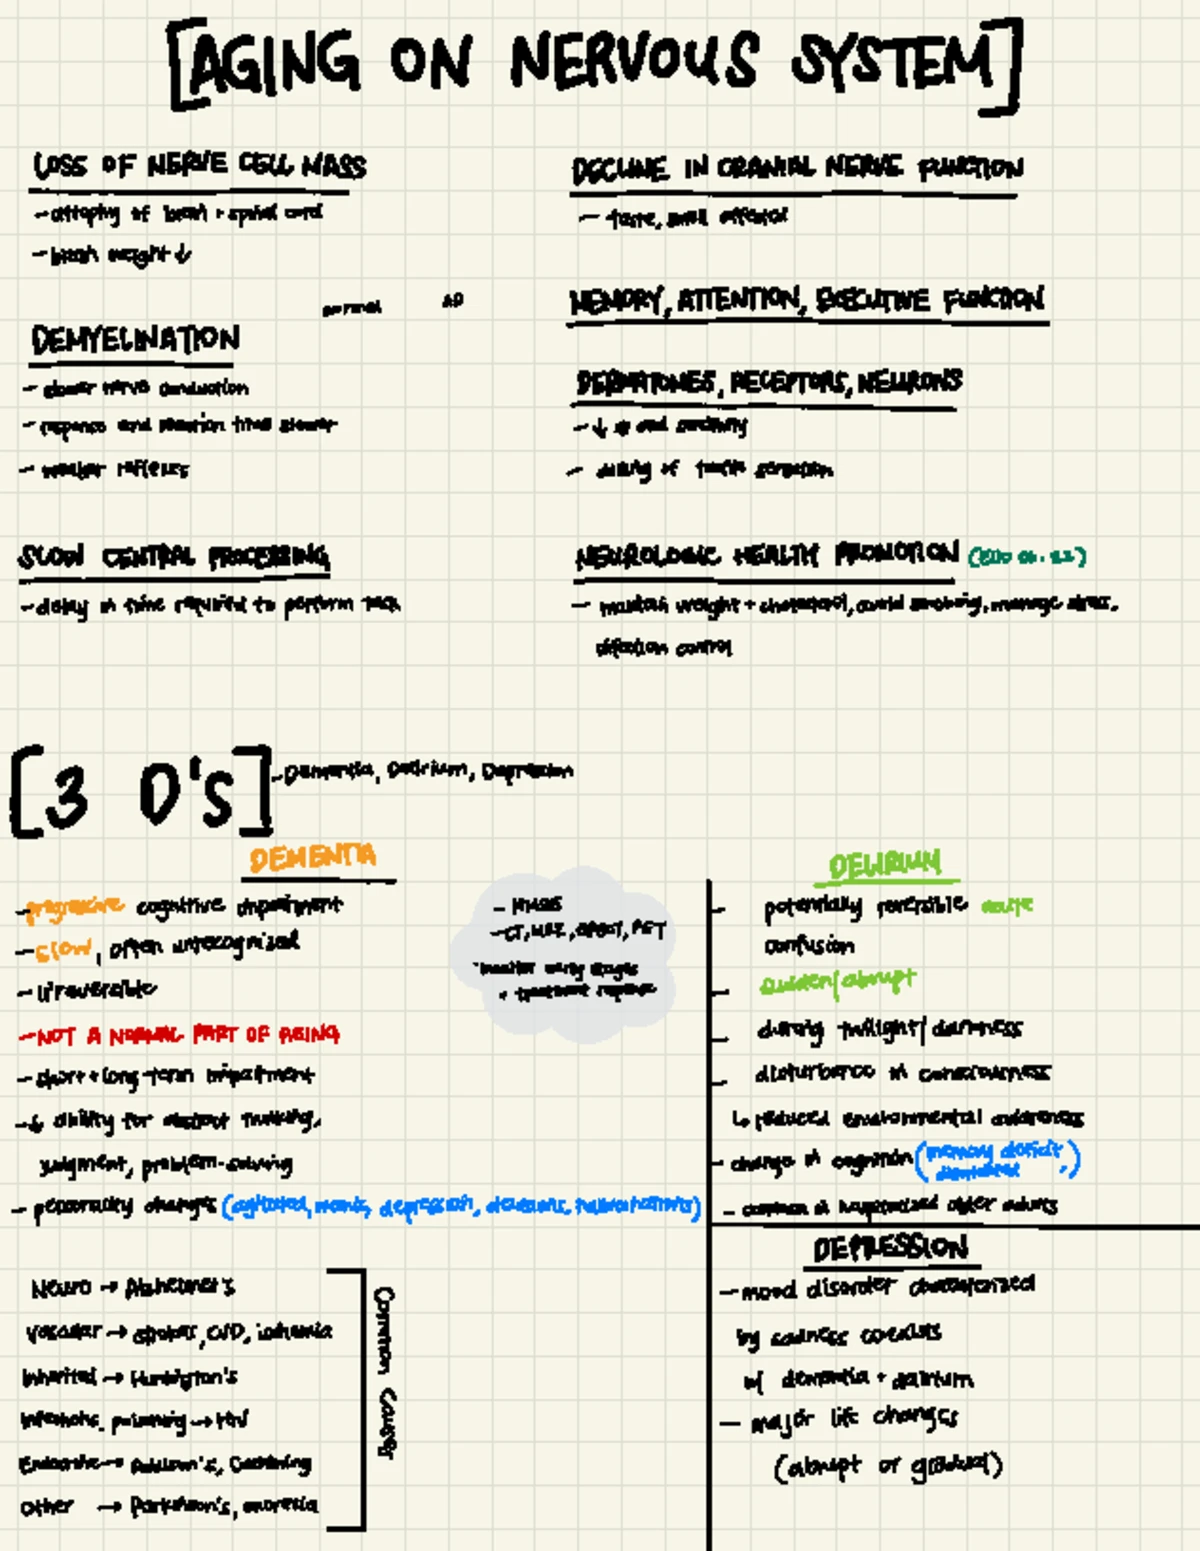 [AGING ON NERVOUS SYSTEM]
LOSS OF NERVE CELL MASS
- atrophy of brain + spinal cord
- brain weight ↓
normal AD
DEMYELINATION
- slower nerve conduction
- response and reaction time slower
- weaker reflexes
SLOW CENTRAL PROCESSING
- delay in time required to perform task
DECLINE IN CRANIAL NERVE FUNCTION
- taste, smell affected
MEMORY, ATTENTION, EXECUTIVE FUNCTION
DERMATOMES, RECEPTORS, NEURONS
- ↓ # and sensitivity
- dulling of tactile sensation
NEUROLOGIC HEALTH PROMOTION
- maintain weight + cholesterol, avoid smoking, manage stress,
infection control
[3 D's] - Dementia, Delirium, Depression
DEMENTIA
- progressive cognitive impairment
- slow, often unrecognized
- irreversible
- NOT A NORMAL PART OF AGING
- short + long-term impairment
- ↓ ability for abstract thinking,
judgment, problem-solving
- personality changes (agitated, manic, depression, delusions, hallucinations)
- MMSE
- CT, MRI, SPECT, PET
*monitor early stages
+ treatment response
DELIRIUM
- potentially reversible acute
confusion
- sudden/abrupt
- during twilight/darkness
- disturbance in consciousness
↳ reduced environmental awareness
- change in cognition (memory deficit,
- common in hospitalized older adults
Neuro → Alzheimer's
Vascular → strokes, CVD, ischemia
Inherited → Huntington's
Infections, poisoning → HIV
Endocrine → Addison's, Cushing
Other → Parkinson's, anorexia
Common Causes
DEPRESSION
- mood disorder characterized
by sadness coexists
w/ dementia + delirium
- major life changes
(abrupt or gradual)